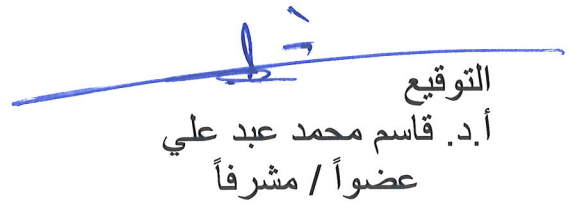 التوقيع
أ.د. قاسم محمد عبد علي
عضواً / مشرفاً